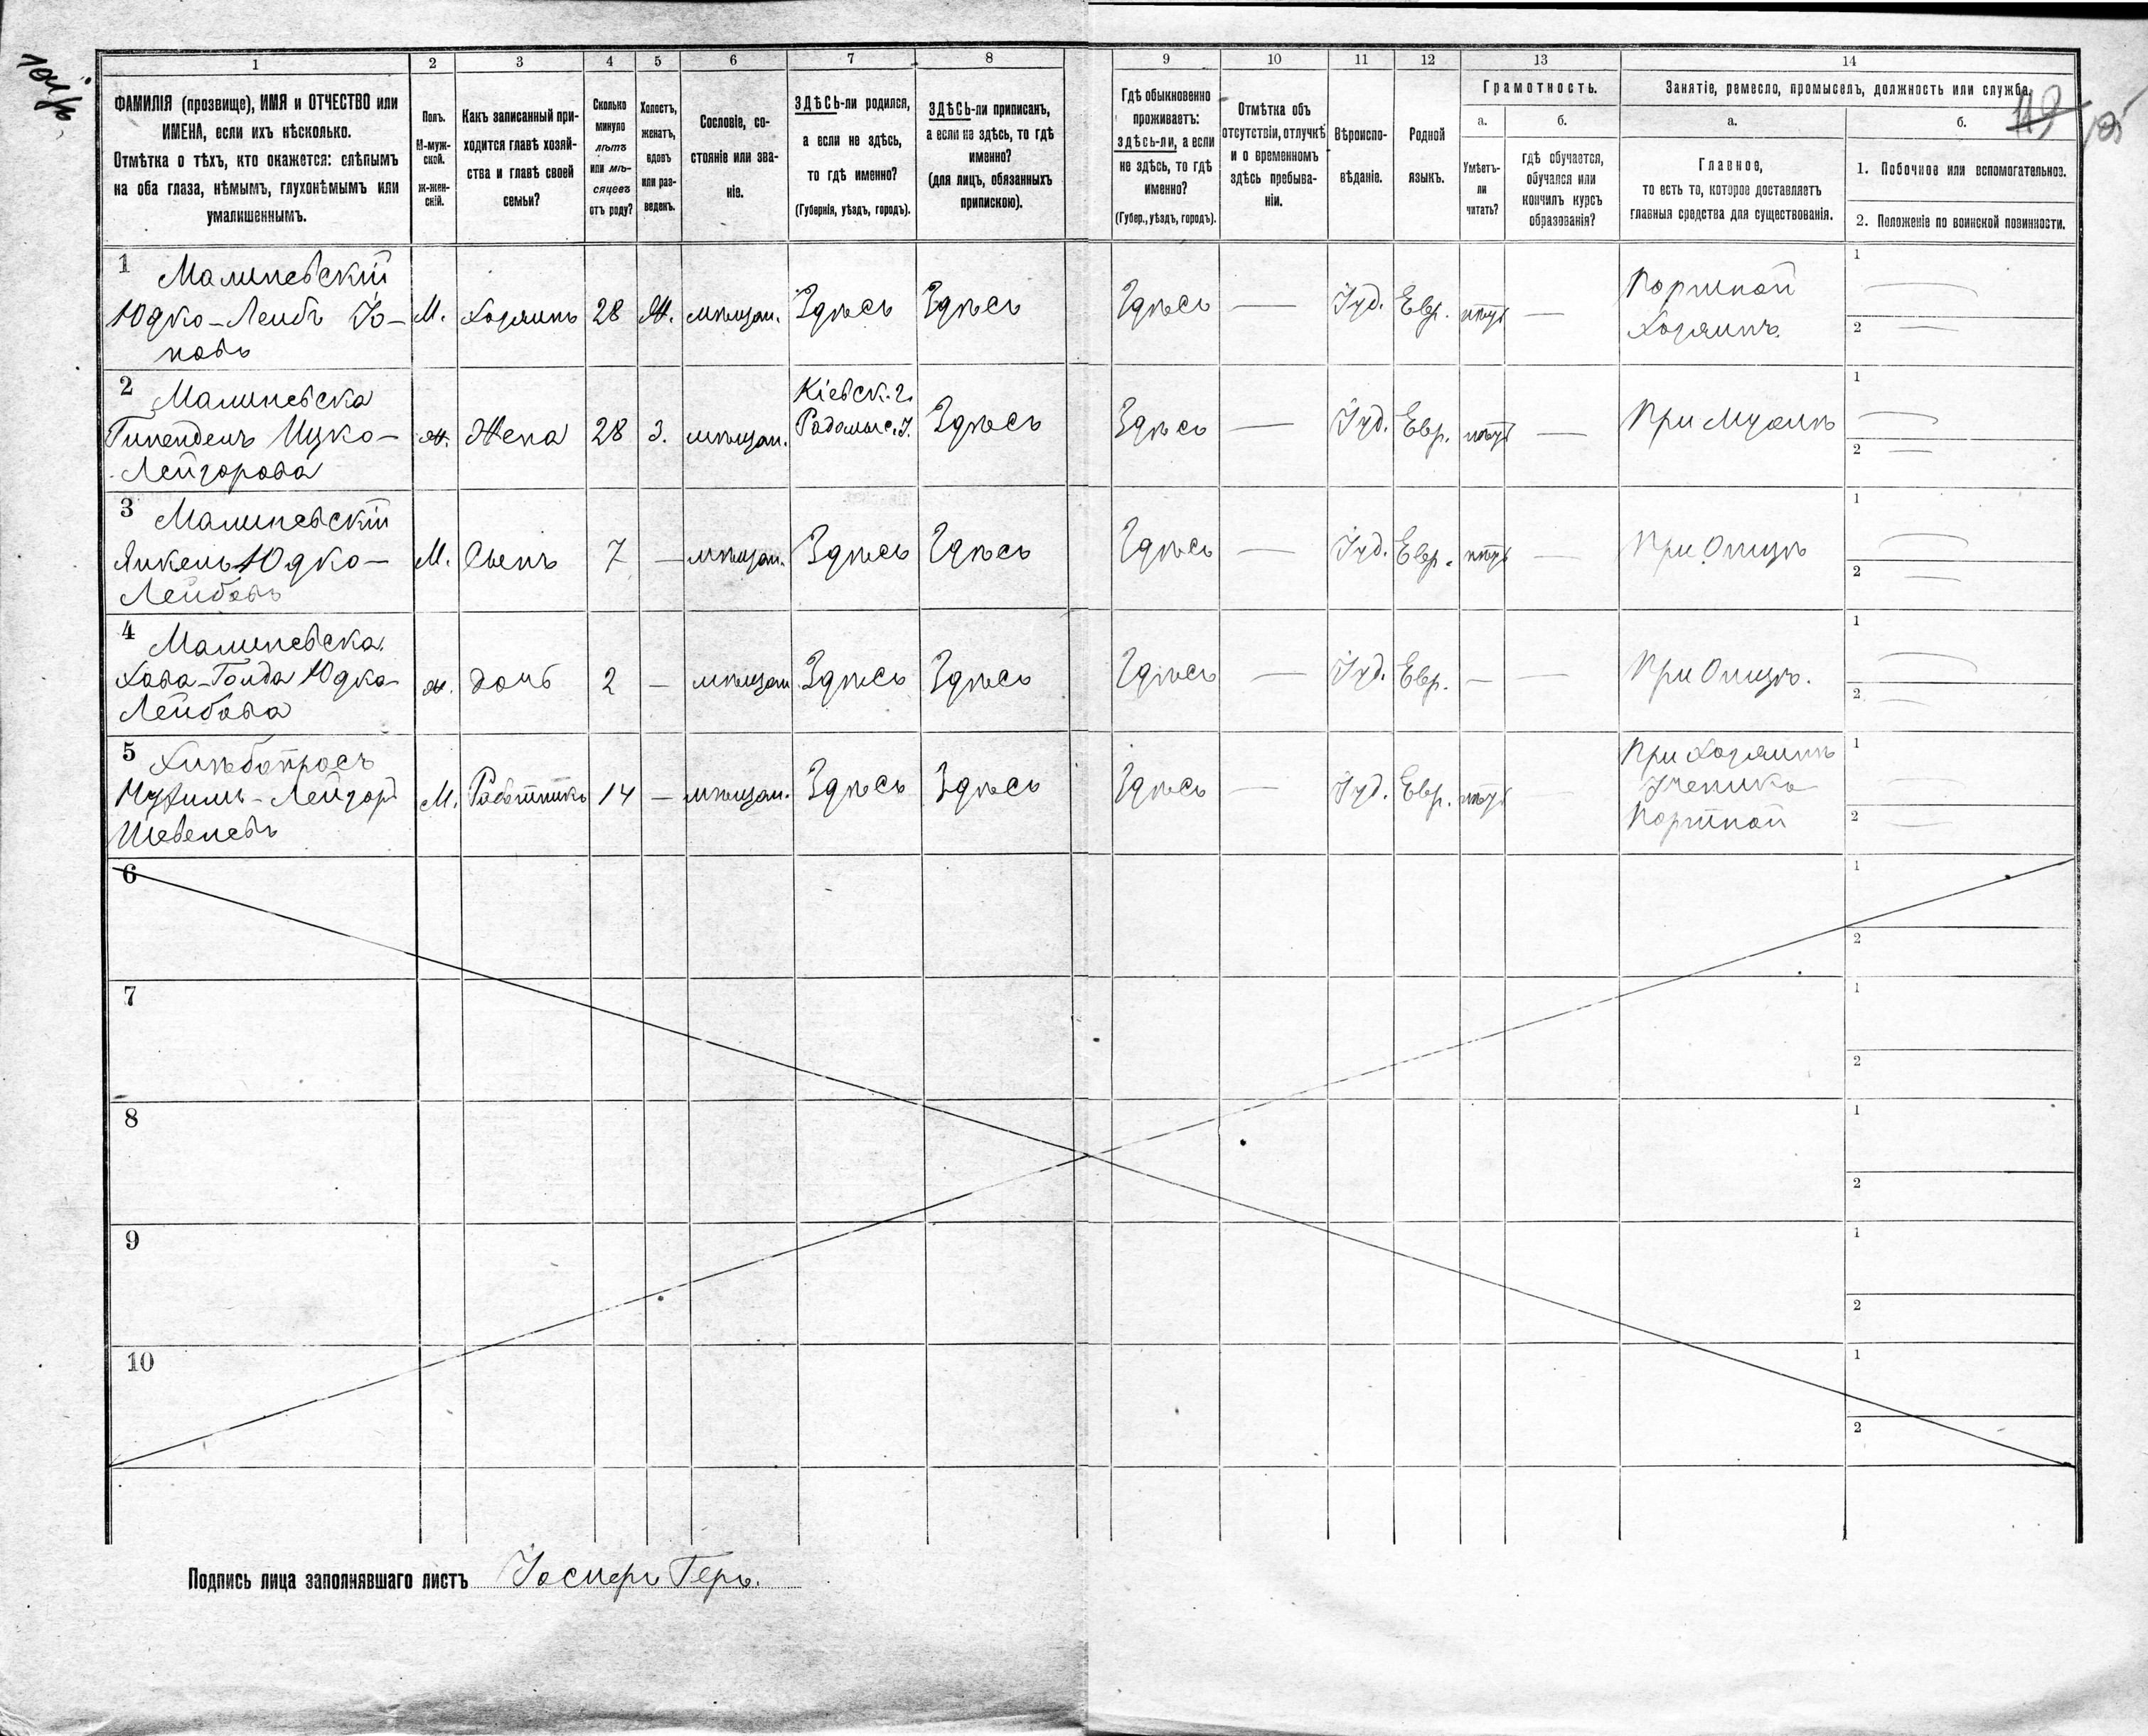 1 2 3 4 5 6 7 8 9 10 11 12 13 14
ФАМИЛІЯ (прозвище), ИМЯ и ОТЧЕСТВО или
ИМЕНА, если ихъ нѣсколько.
Отмѣтка о тѣхъ, кто окажется: слѣпымъ
на оба глаза, нѣмымъ, глухонѣмымъ или
умалишеннымъ.
Полъ.
М-муж-
ской.
Ж-жен-
скій.
Какъ записанный при-
ходится главѣ хозяй-
ства и главѣ своей
семьи?
Сколько
минуло
лѣтъ
или мѣ-
сяцевъ
отъ роду?
Холостъ,
женатъ,
вдовъ
или раз-
веденъ.
Сословіе, со-
стояніе или зва-
ніе.
ЗДѢСЬ-ли родился,
а если не здѣсь,
то гдѣ именно?
(Губернія, уѣздъ, городъ).
ЗДѢСЬ-ли приписанъ,
а если не здѣсь, то гдѣ
именно?
(для лицъ, обязанныхъ
припискою).
Гдѣ обыкновенно
проживаетъ:
здѣсь-ли, а если
не здѣсь, то гдѣ
именно?
(Губер., уѣздъ, городъ).
Отмѣтка объ
отсутствіи, отлучкѣ
и о временномъ
здѣсь пребыва-
ніи.
Вѣроиспо-
вѣданіе.
Родной
языкъ.
Грамотность.
а.
Умѣетъ-
ли
читать?
б.
гдѣ обучается,
обучался или
кончилъ курсъ
образованія?
Занятіе, ремесло, промыселъ, должность или служба.
119
а.
Главное,
то есть то, которое доставляетъ
главныя средства для существованія.
б.
1. Побочное или вспомогательное.
2. Положеніе по воинской повинности.
1 Малиневскій
Юдко-Лейбъ Іо-
новъ
М. Хозяинъ 28 Ж. мѣщан. Здѣсь Здѣсь Здѣсь — Іуд. Евр. —
Портной
Хозяинъ.
1
2
2 Малиневска
Ицко-
Лейзорова
ж. Жена 28 З. мѣщан.
Кіевск. г.
Радомыс. У.
Здѣсь Здѣсь — Іуд. Евр. — При Мужѣ
1
2
3 Малиневскій
Янкель Юдко-
Лейбовъ
М. Сынъ 7 — мѣщан. Здѣсь Здѣсь Здѣсь — Іуд. Евр. — При Отцѣ
1
2
4 Малиневска
Хава-Голда Юдко-
Лейбова
ж. дочь 2 — мѣщан Здѣсь Здѣсь Здѣсь — Іуд. Евр. — — При Отцѣ.
1
2
5
Лейзоръ
М. Работникъ 14 — мѣщан. Здѣсь Здѣсь Здѣсь — Іуд. Евр. —
При Хозяинѣ
Ученикъ
Портной
1
2
6
1
2
7
1
2
8
1
2
9
1
2
10
1
2
Подпись лица заполнявшаго листъ Геръ.